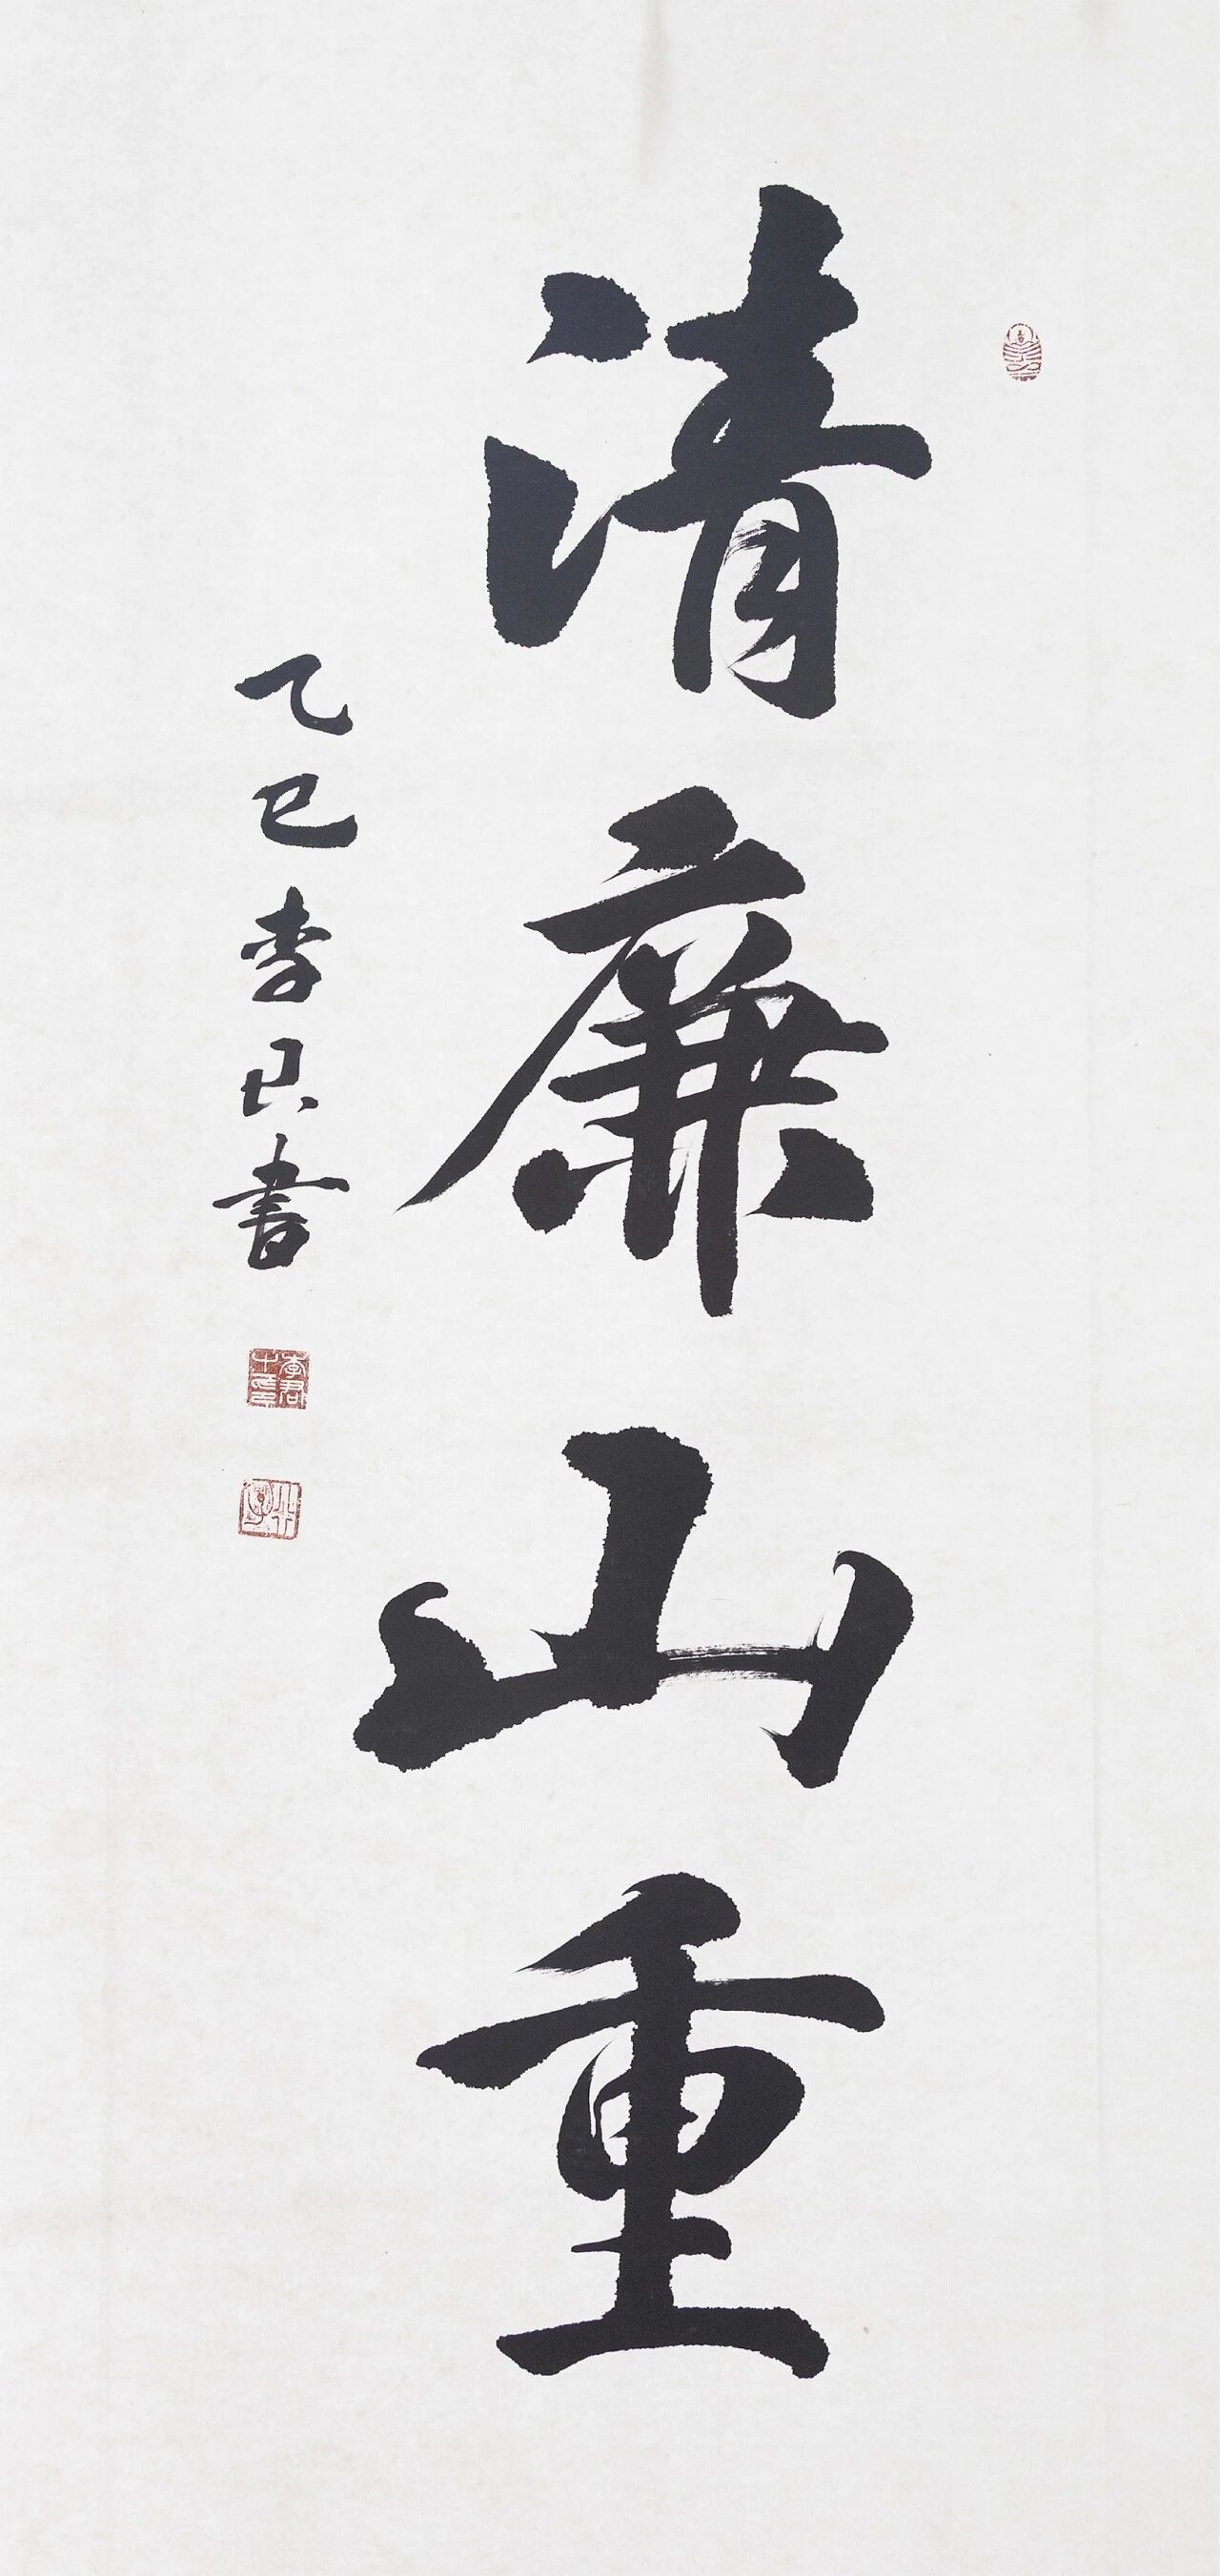 清廉山重
乙巳李君書